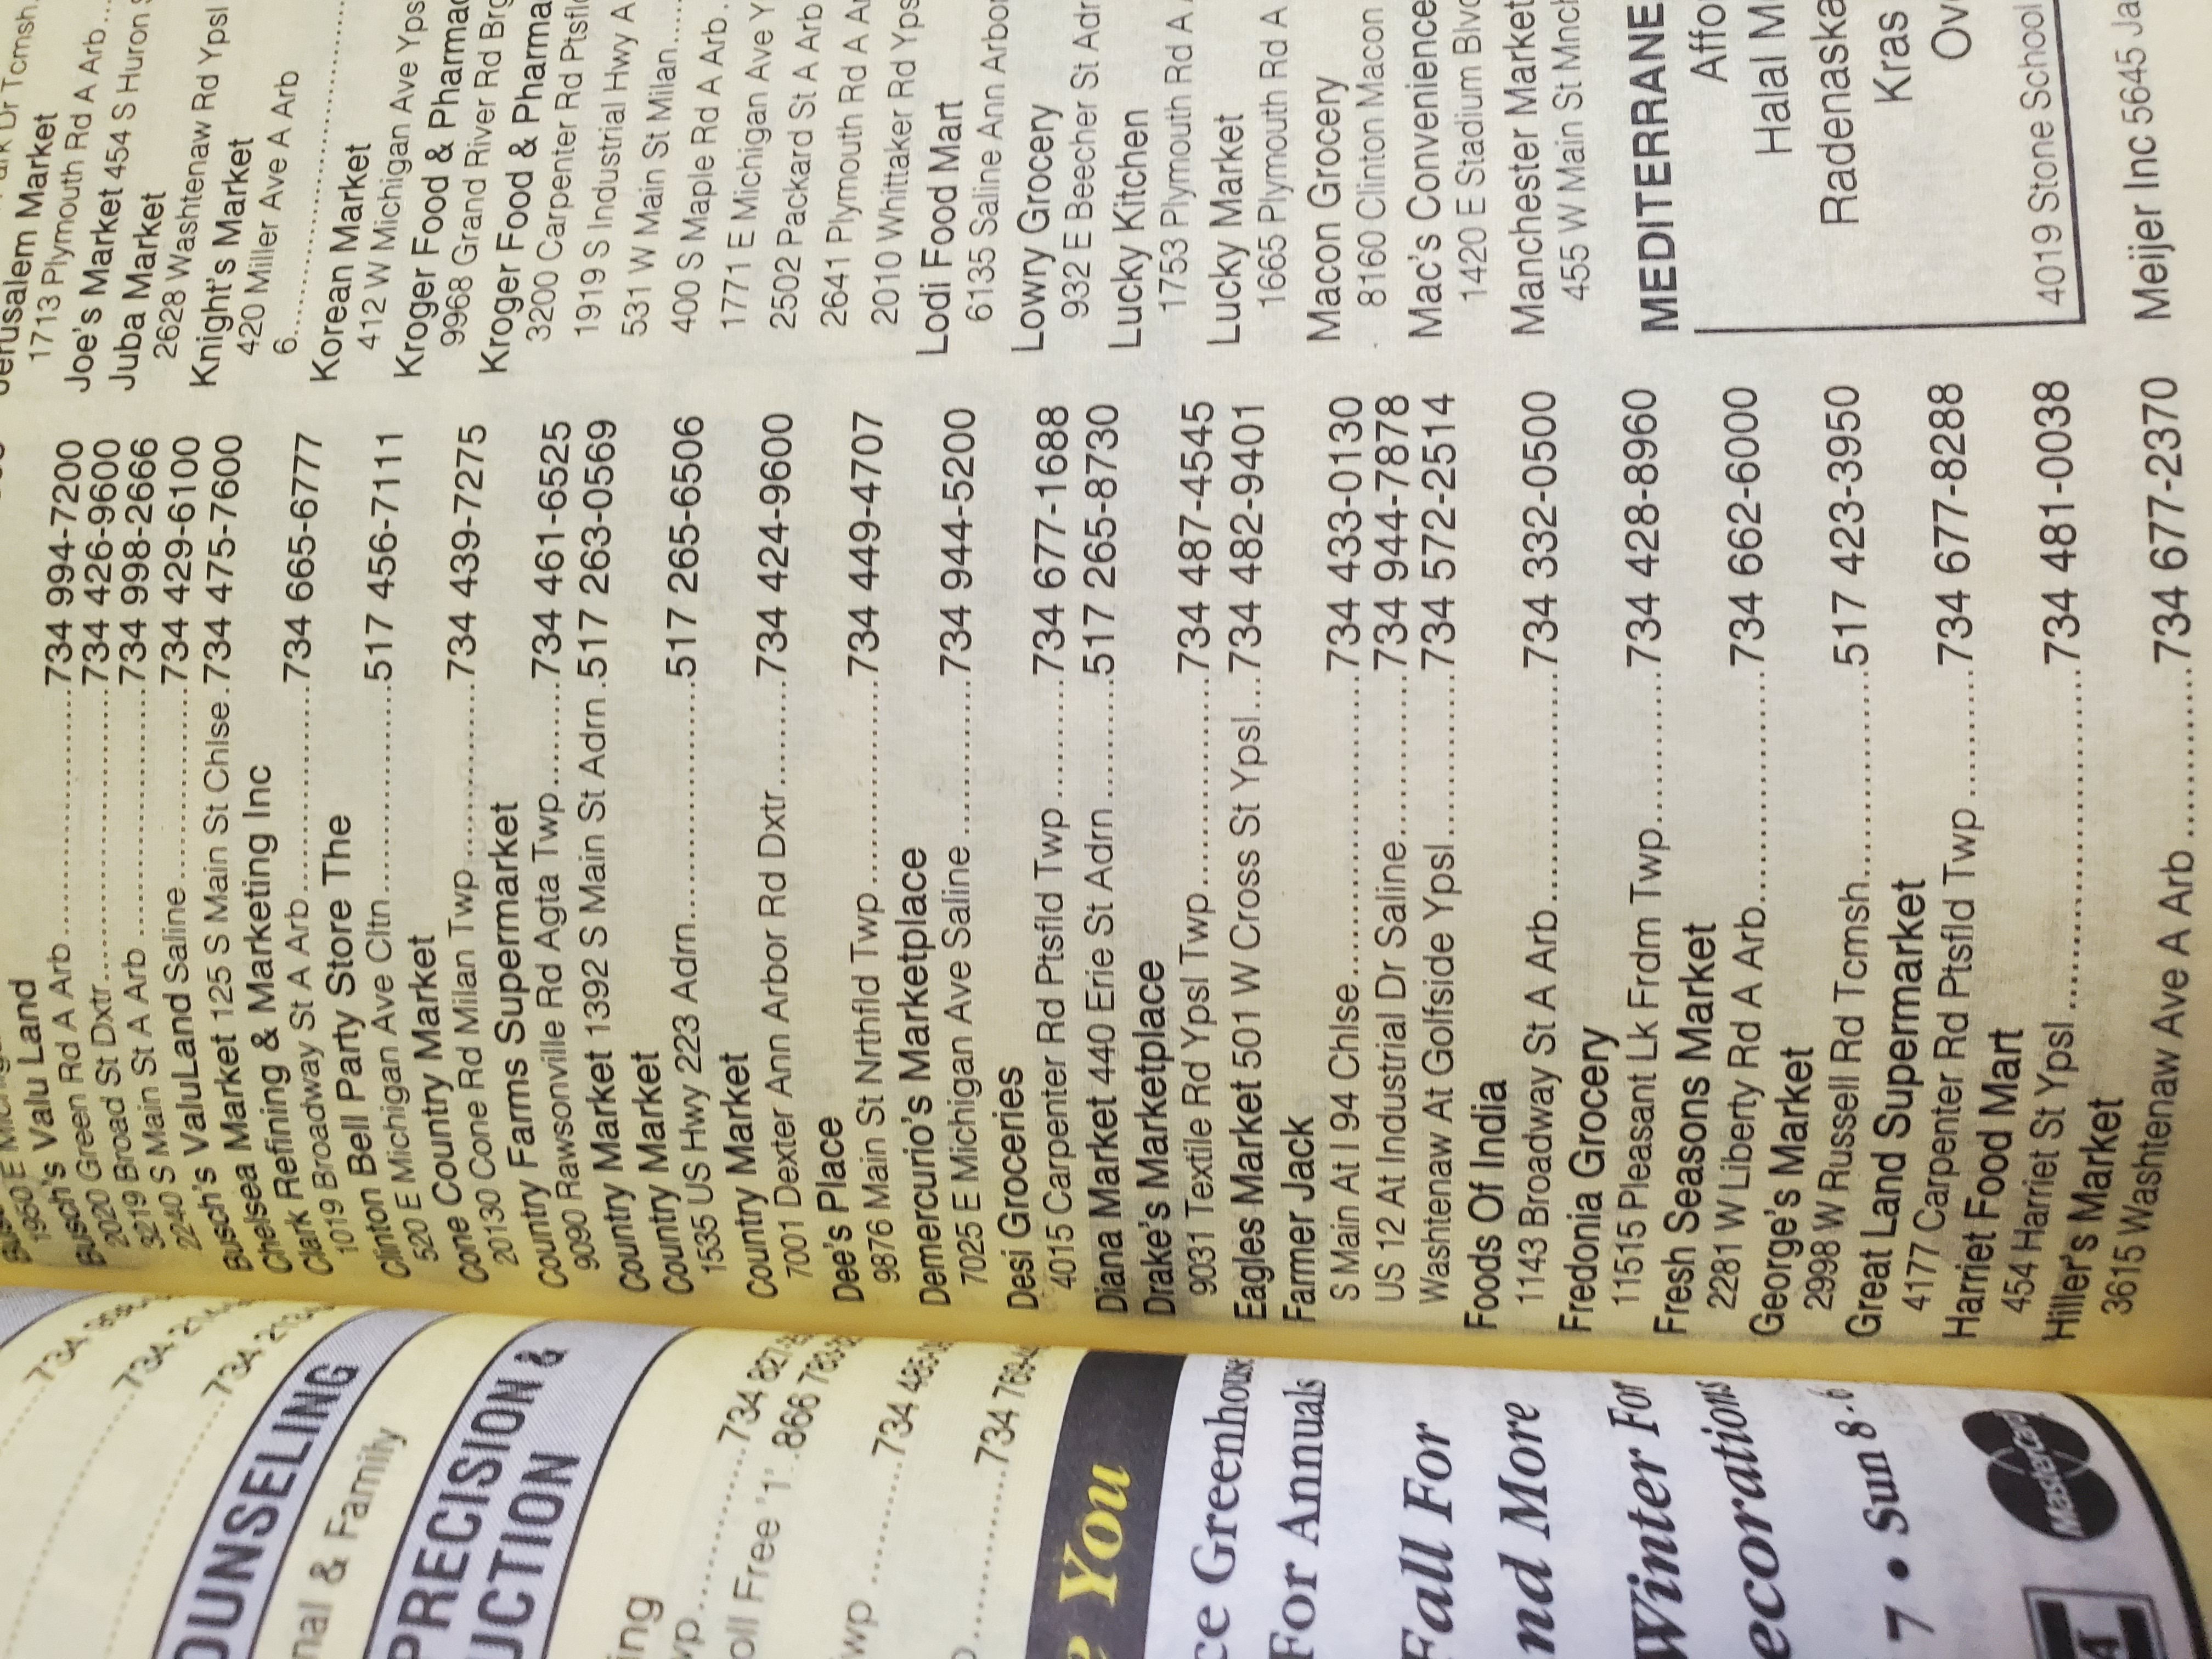 1950 E
Busch's Valu Land
2020 Green Rd A Arb 734 994-7200
3219 Broad St Dxtr 734 426-9600
2240 S Main St A Arb 734 998-2666
Busch's ValuLand Saline 734 429-6100
Chelsea Market 125 S Main St Chlse 734 475-7600
Clark Refining & Marketing Inc
1019 Broadway St A Arb 734 665-6777
Clinton Bell Party Store The
520 E Michigan Ave Cltn 517 456-7111
Cone Country Market
20130 Cone Rd Milan Twp 734 439-7275
Country Farms Supermarket
9090 Rawsonville Rd Agta Twp 734 461-6525
Country Market 1392 S Main St Adrn 517 263-0569
Country Market
1535 US Hwy 223 Adrn 517 265-6506
Country Market
7001 Dexter Ann Arbor Rd Dxtr 734 424-9600
Dee's Place
9876 Main St Nrthfld Twp 734 449-4707
Demercurio's Marketplace
7025 E Michigan Ave Saline 734 944-5200
Desi Groceries
4015 Carpenter Rd Ptsfld Twp 734 677-1688
Diana Market 440 Erie St Adrn 517 265-8730
Drake's Marketplace
9031 Textile Rd Ypsl Twp 734 487-4545
Eagles Market 501 W Cross St Ypsl 734 482-9401
Farmer Jack
S Main At I 94 Chlse 734 433-0130
US 12 At Industrial Dr Saline 734 944-7878
Washtenaw At Golfside Ypsl 734 572-2514
Foods Of India
1143 Broadway St A Arb 734 332-0500
Fredonia Grocery
11515 Pleasant Lk Frdm Twp 734 428-8960
Fresh Seasons Market
2281 W Liberty Rd A Arb 734 662-6000
George's Market
2998 W Russell Rd Tcmsh 517 423-3950
Great Land Supermarket
4177 Carpenter Rd Ptsfld Twp 734 677-8288
Harriet Food Mart
454 Harriet St Ypsl 734 481-0038
Hiller's Market
3615 Washtenaw Ave A Arb 734 677-2370
Dr Tcmsh
Jerusalem Market
1713 Plymouth Rd A Arb
Joe's Market 454 S Huron S
Juba Market
2628 Washtenaw Rd Ypsl
Knight's Market
420 Miller Ave A Arb
6
Korean Market
412 W Michigan Ave Yps
Kroger Food & Pharmac
9968 Grand River Rd Brg
Kroger Food & Pharma
3200 Carpenter Rd Ptsfld
1919 S Industrial Hwy A
531 W Main St Milan
400 S Maple Rd A Arb
1771 E Michigan Ave Y
2502 Packard St A Arb
2641 Plymouth Rd A Ar
2010 Whittaker Rd Yps
Lodi Food Mart
6135 Saline Ann Arbor
Lowry Grocery
932 E Beecher St Adr
Lucky Kitchen
1753 Plymouth Rd A
Lucky Market
1665 Plymouth Rd A
Macon Grocery
8160 Clinton Macon
Mac's Convenience
1420 E Stadium Blvd
Manchester Market
455 W Main St Mnch
MEDITERRANE
Affo
Halal M
Radenaska
Kras
Ov
4019 Stone School
Meijer Inc 5645 Ja
734
734
734
OUNSELING
nal & Family
PRECISION &
UCTION
ing
wp 734
oll Free '1' 866
wp 734
734
You
ce Greenhouse
For Annuals
Fall For
nd More
Winter For
ecorations
7 • Sun 8-6
MasterCard